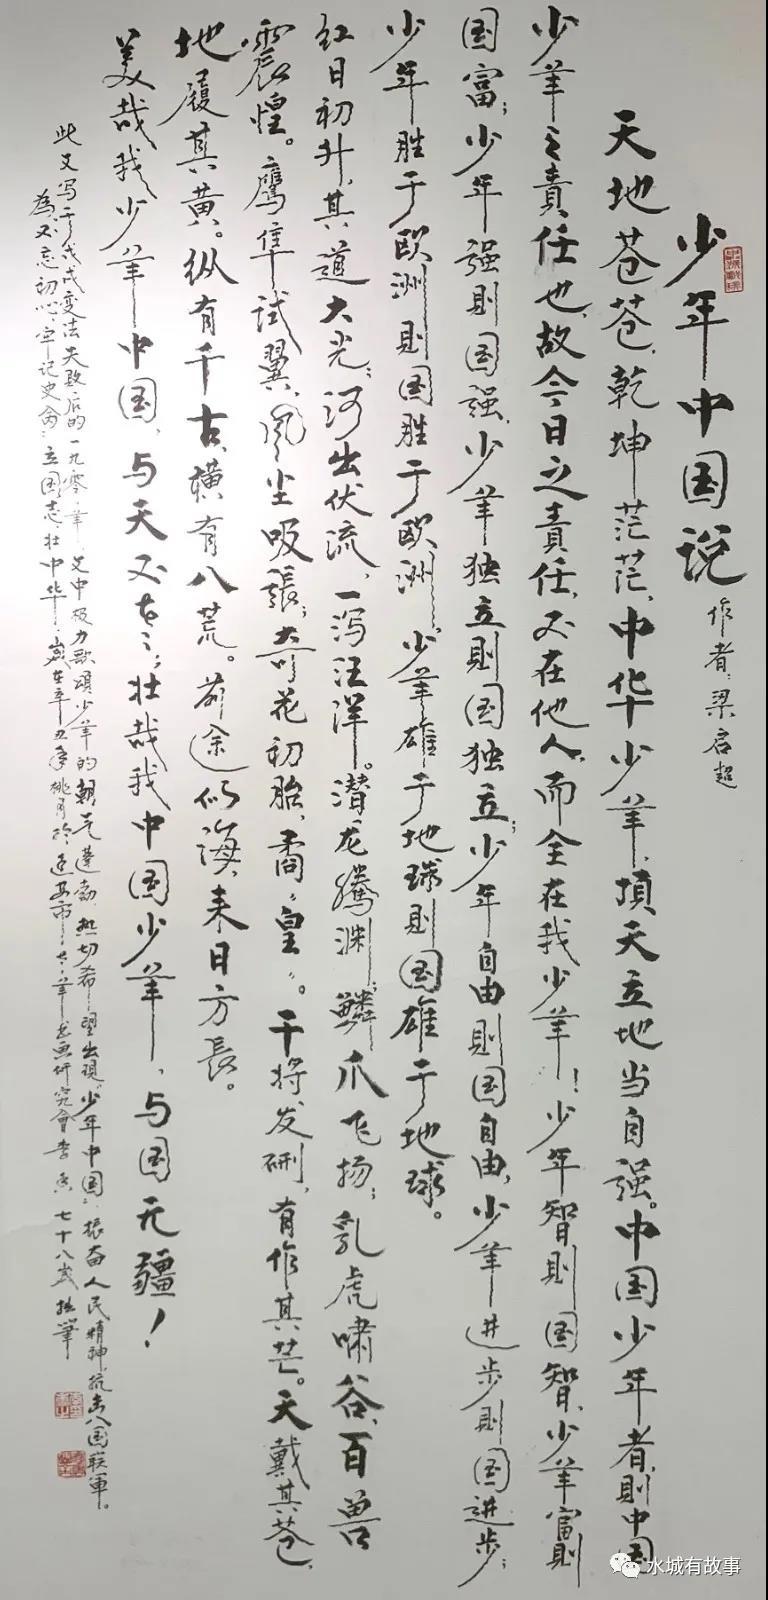 少年中国说
作者：梁启超
天地苍苍，乾坤茫茫，中华少年，顶天立地当自强。中国少年者，则中国
少年之责任也，故今日之责任，不在他人，而全在我少年！少年智则国智，少年富则
国富；少年强则国强，少年独立则国独立；少年自由则国自由，少年进步则国进步；
少年胜于欧洲则国胜于欧洲，少年雄于地球则国雄于地球。
红日初升，其道大光；河出伏流，一泻汪洋。潜龙腾渊，鳞爪飞扬；乳虎啸谷，百兽
震惶。鹰隼试翼，风尘吸張；奇花初胎，矞矞皇皇。干将发硎，有作其芒。天戴其苍，
地履其黄。纵有千古，横有八荒。前途似海，来日方長。
美哉我少年中国，与天不老；壮哉我中国少年，与国无疆！
此文写于戊戌变法失败后的一九零零年，文中极力歌颂少年的朝气蓬勃，热切希望出現“少年中国”，振奋人民精神，抗击八国联軍。
為不忘初心，牢记史命，立国志，壮中华，歲在辛丑年桃月於 市老年书画研究會李 七十八歲拙筆
水城有故事